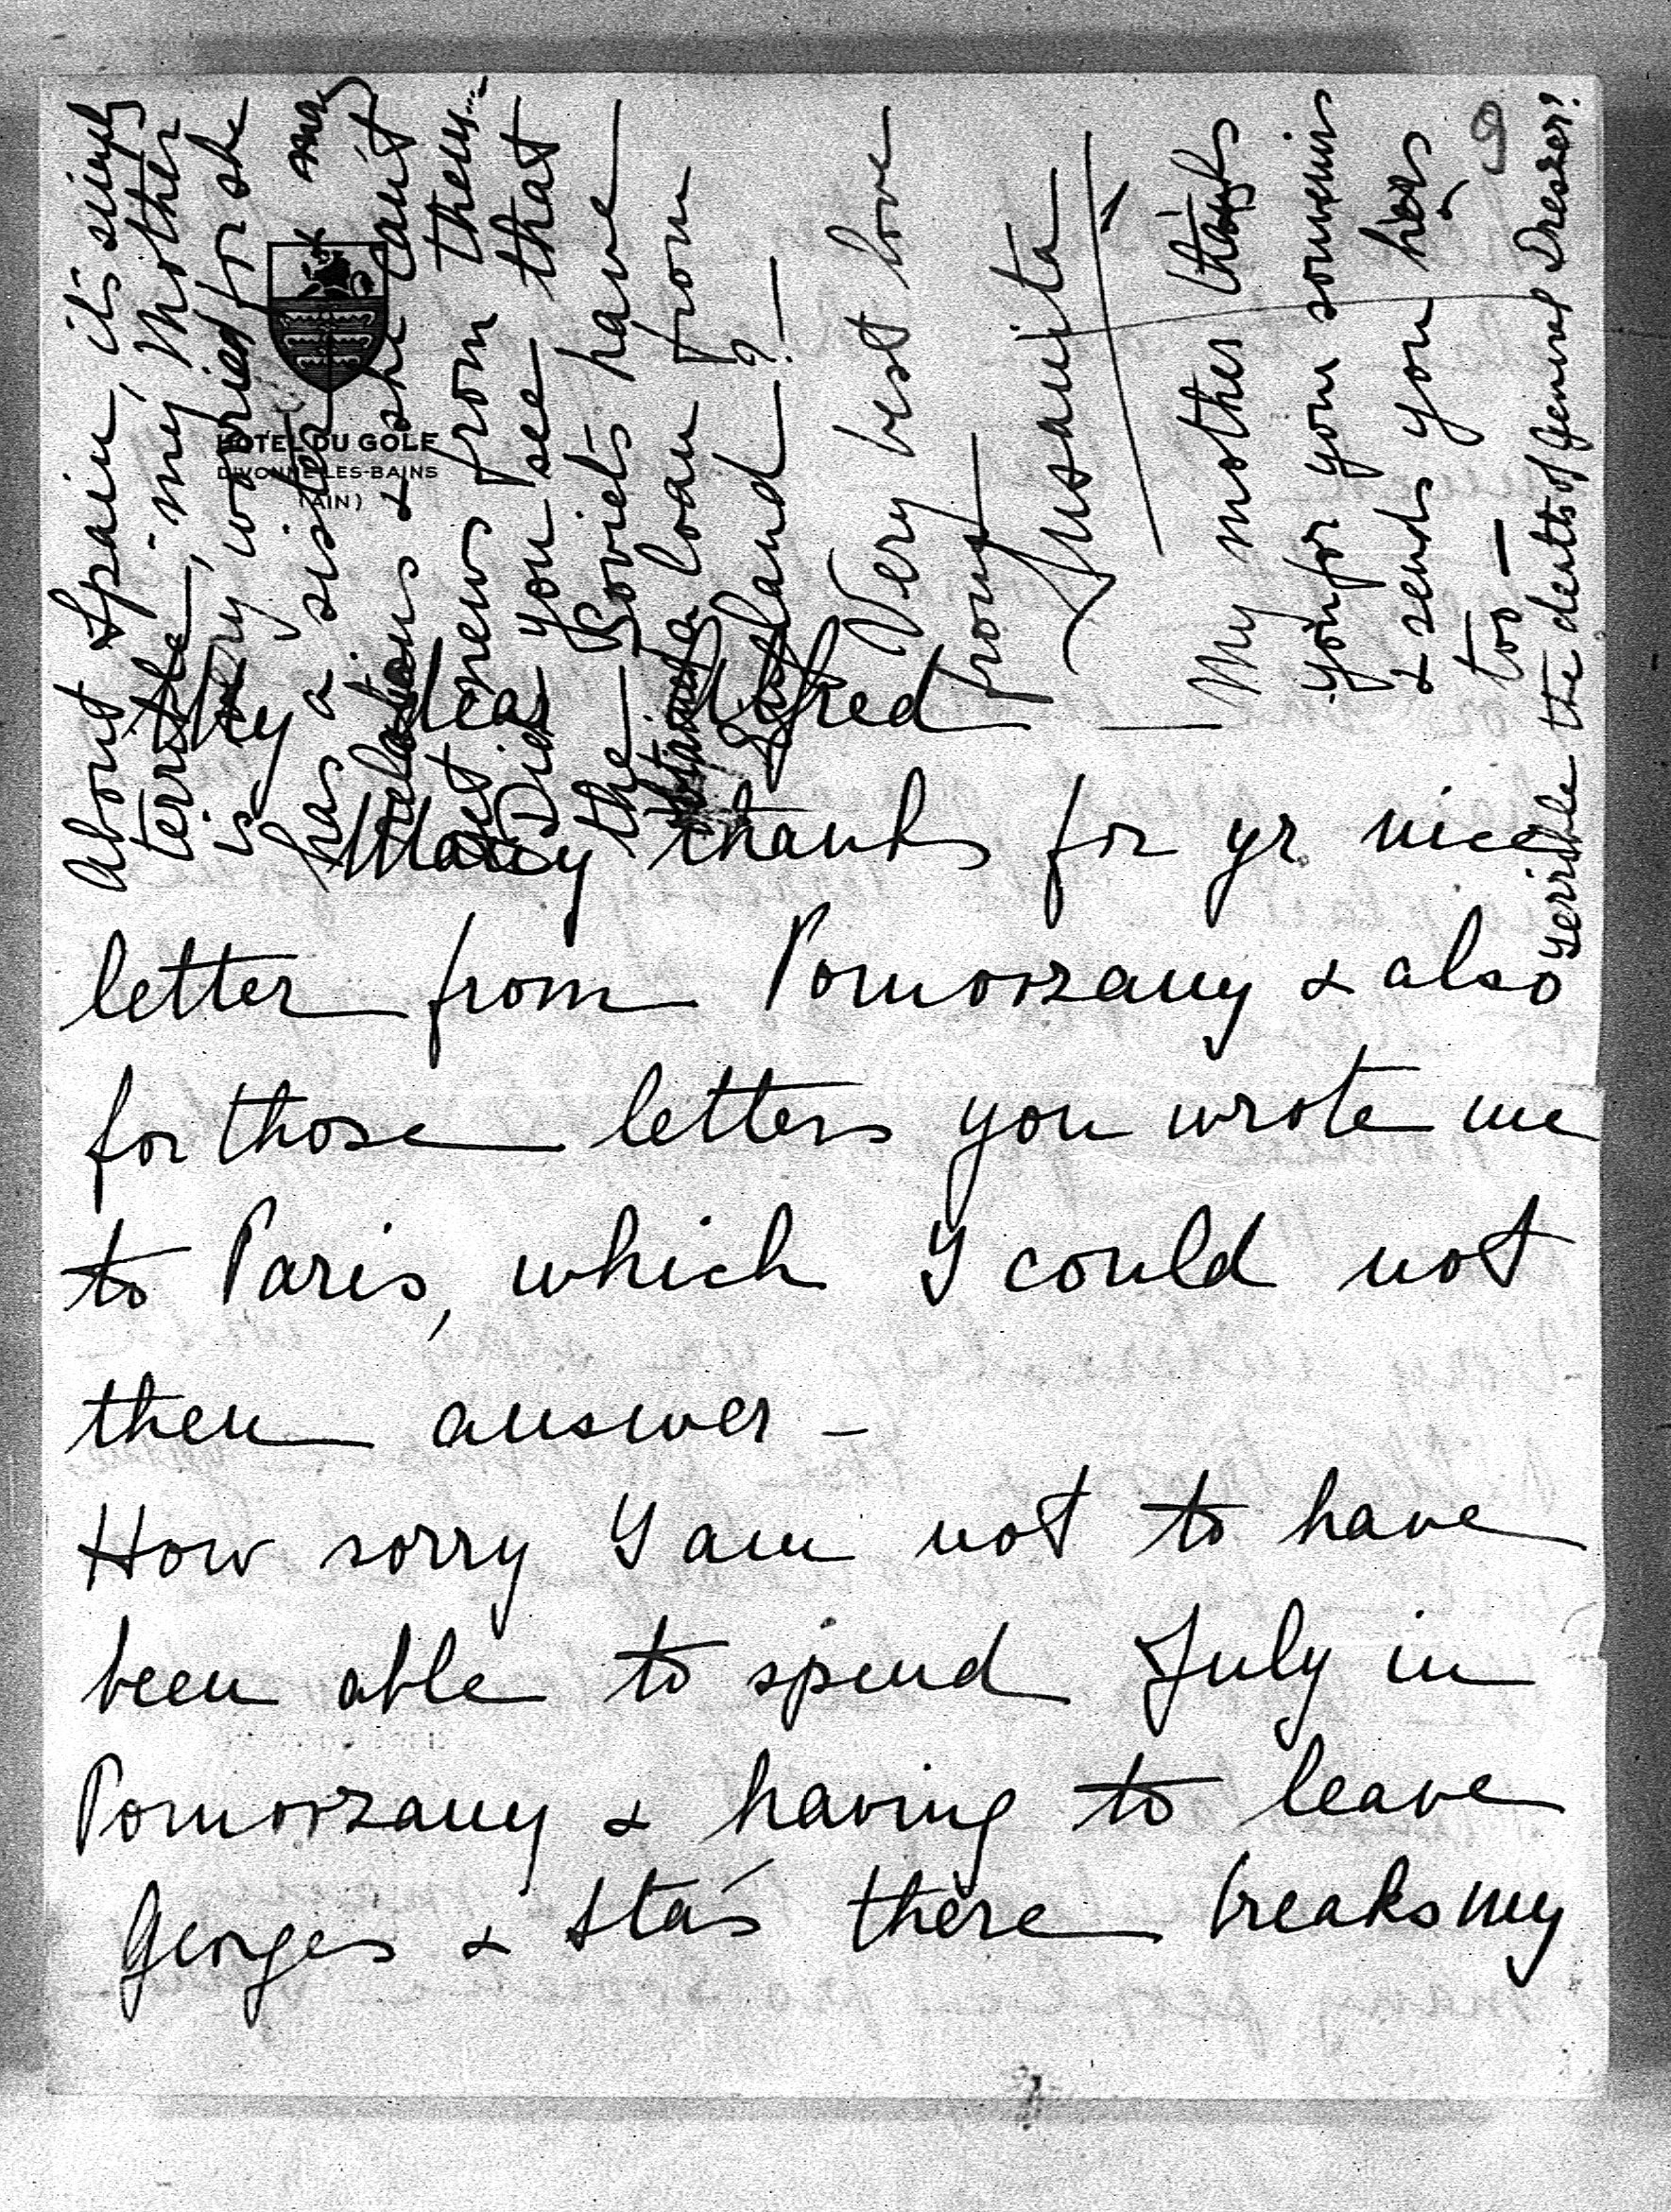 9
HOTEL DU GOLF
DIVONNE-LES-BAINS
(AIN)
My dear Alfred
Many thanks for yr nice
letter from Pomorzany & also
for those letters you wrote me
to Paris, which I could not
then answer –
How sorry I am not to have
been able to spend July in
Pomorzany & having to leave
Georges & Stas there breaks my
About Spain, it's simply
terrible, my Mother
is very worried for she
has a sister & many
relations & she can't
get news from them...
Did you see that
the Soviets have
a loan from
England?! –
Very best love
from
Susanita
My mother thanks
you for your souvenirs
& sends you hers
too –
Terrible the death of General Dreszer?